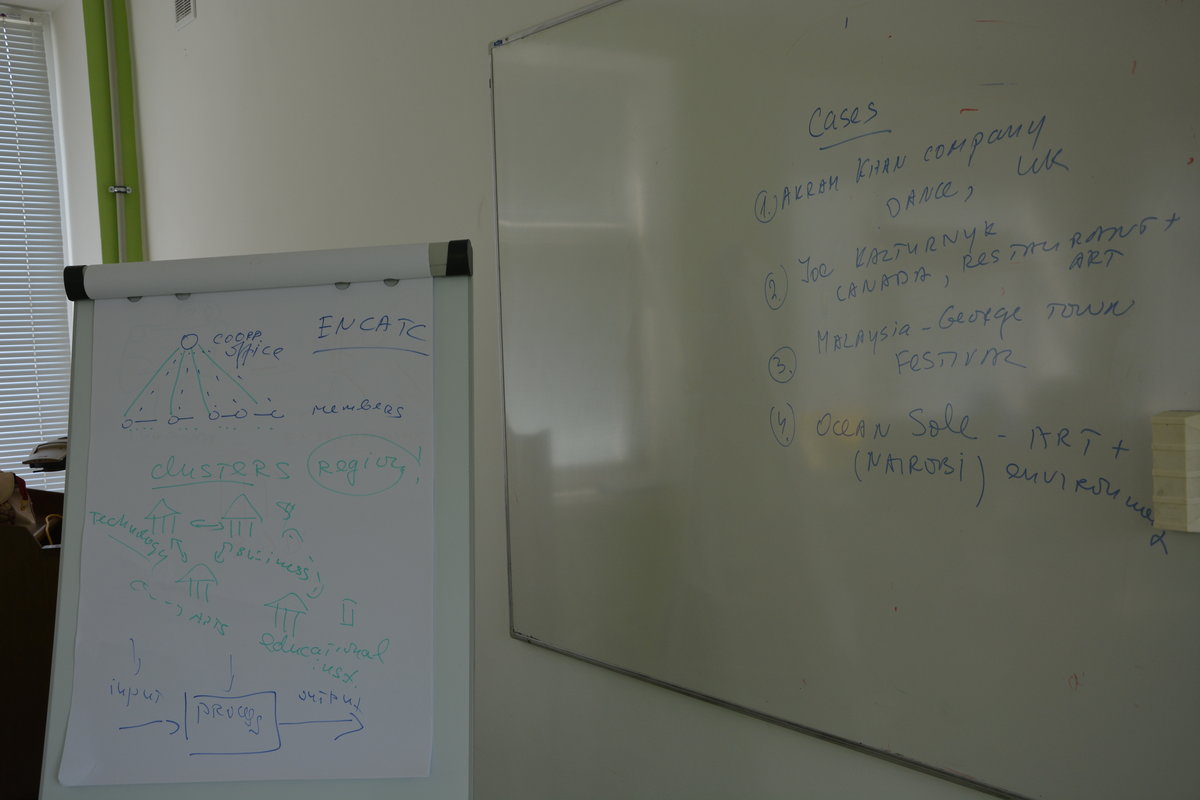 ENCATC
COOPP.
office
members
clusters
region!
Technology
Business
ARTS
educational
inst.
input
process
output
Cases
1. AKRAM KHAN company
DANCE, UK
2. Joe KALTURNYK
CANADA, RESTAURANT +
ART
3. MALAYSIA - George TOWN
FESTIVAL
4. OCEAN Sole - ART +
(NAIROBI) environme